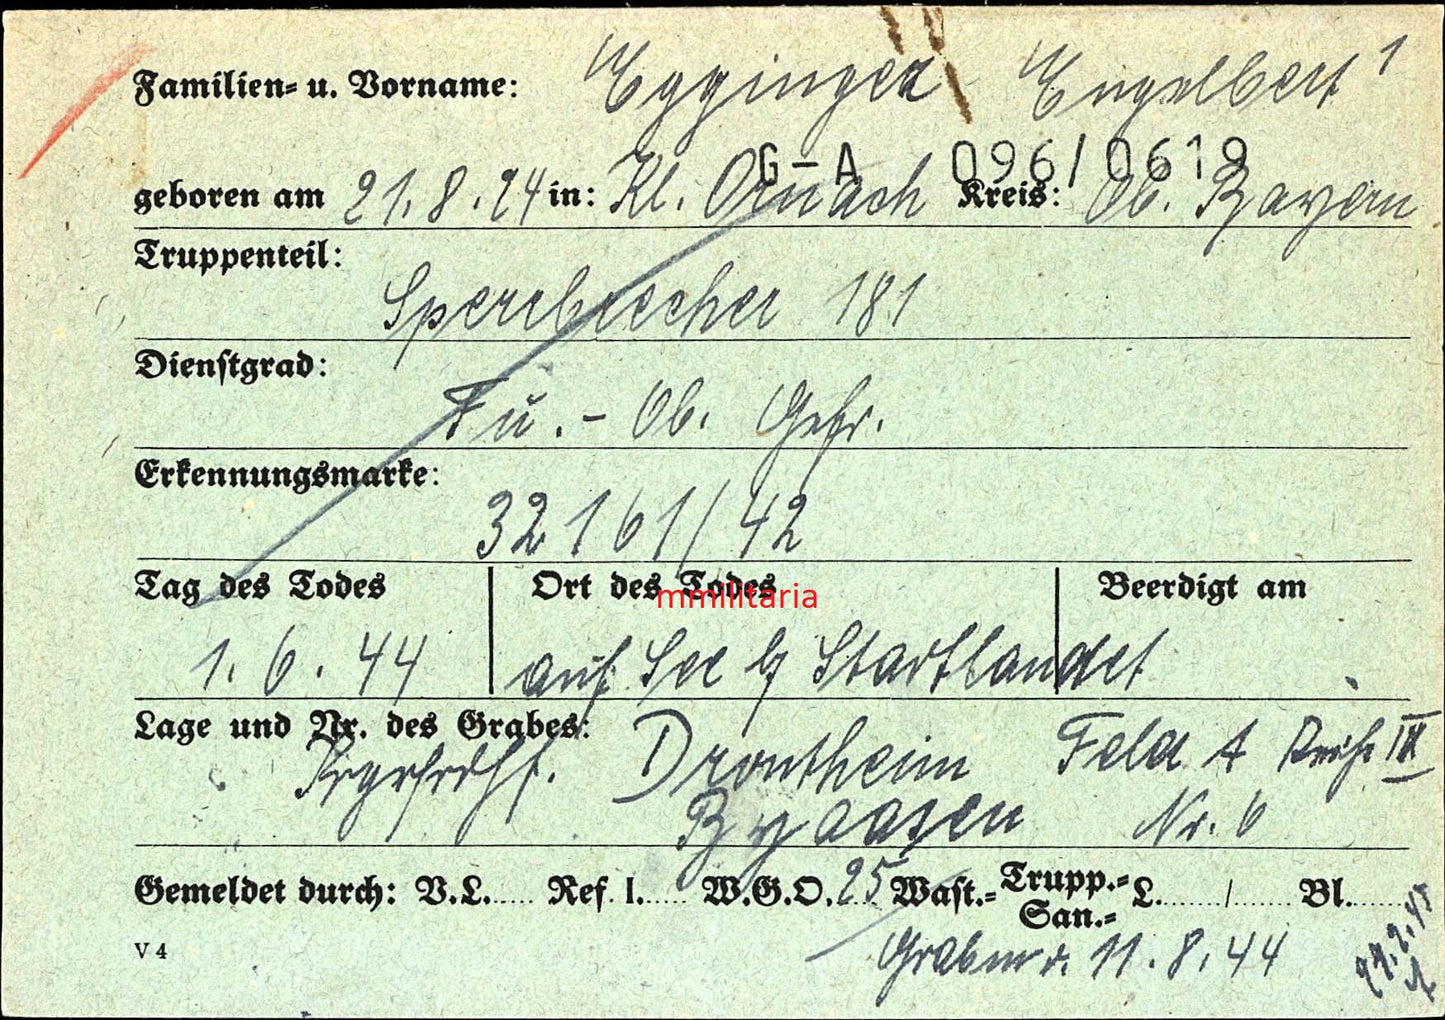 Familien- u. Vorname: Egginger Engelbert 1
G-A 096/0619
geboren am 21.8.24 in: Kl. Ornach Kreis: Ob. Bayern
Truppenteil:
Sperrbrecher 181
Dienstgrad:
Fu.- Ob. Gefr.
Erkennungsmarke:
32161/42
Tag des Todes Ort des Todes Beerdigt am
mmilitaria
1.6.44 auf See b/ Stadtlandet
Lage und Nr. des Grabes:
Drontheim Feld A Reihe III
Byaasen Nr. 6
Gemeldet durch: V.L..... Ref. I..... W.G.O. 25 Wast.- Trupp.- San.- L......./...... Bl......
V 4
Grabm v. 11.8.44